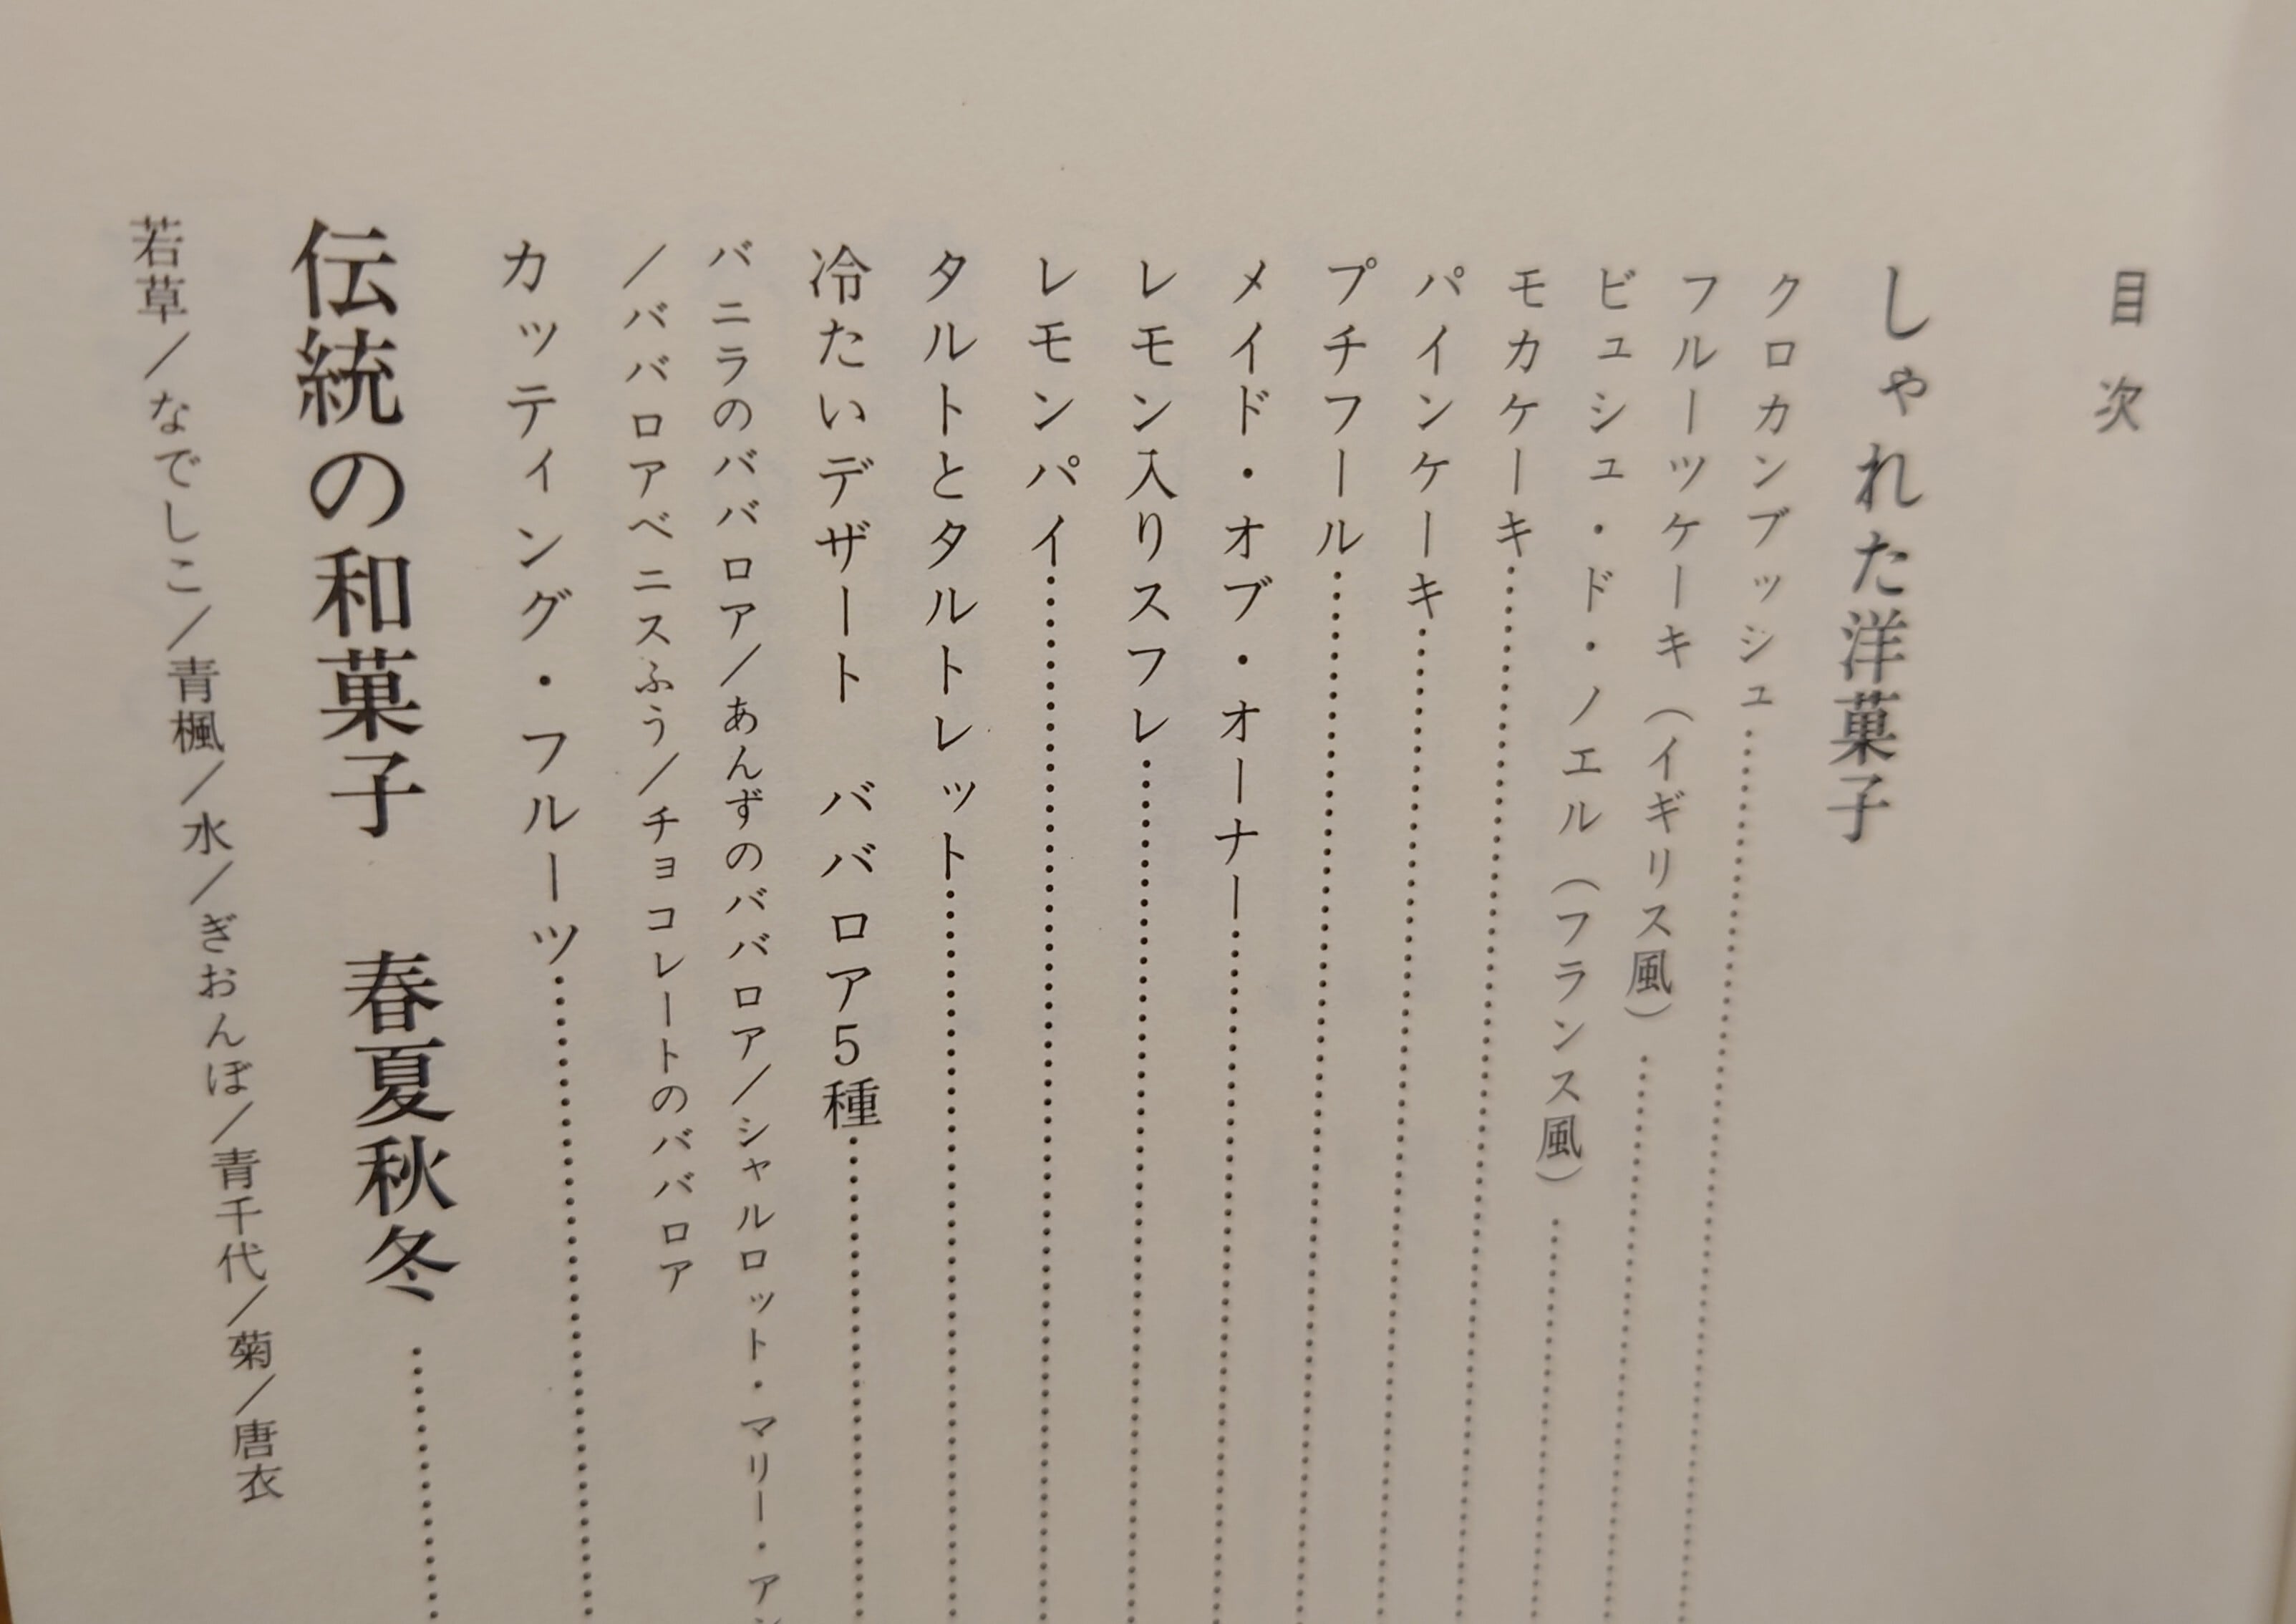 目次
しゃれた洋菓子
クロカンブッシュ……………………
フルーツケーキ（イギリス風）……………………
ビュシュ・ド・ノエル（フランス風）……………………
モカケーキ……………………
パインケーキ……………………
プチフール……………………
メイド・オブ・オーナー……………………
レモン入りスフレ……………………
レモンパイ……………………
タルトとタルトレット……………………
冷たいデザート　ババロア5種……………………
バニラのババロア／あんずのババロア／シャルロット・マリー・ア
／ババロアベニスふう／チョコレートのババロア
カッティング・フルーツ……………………
伝統の和菓子　春夏秋冬……………………
若草／なでしこ／青楓／水／ぎおんぼ／青千代／菊／唐衣